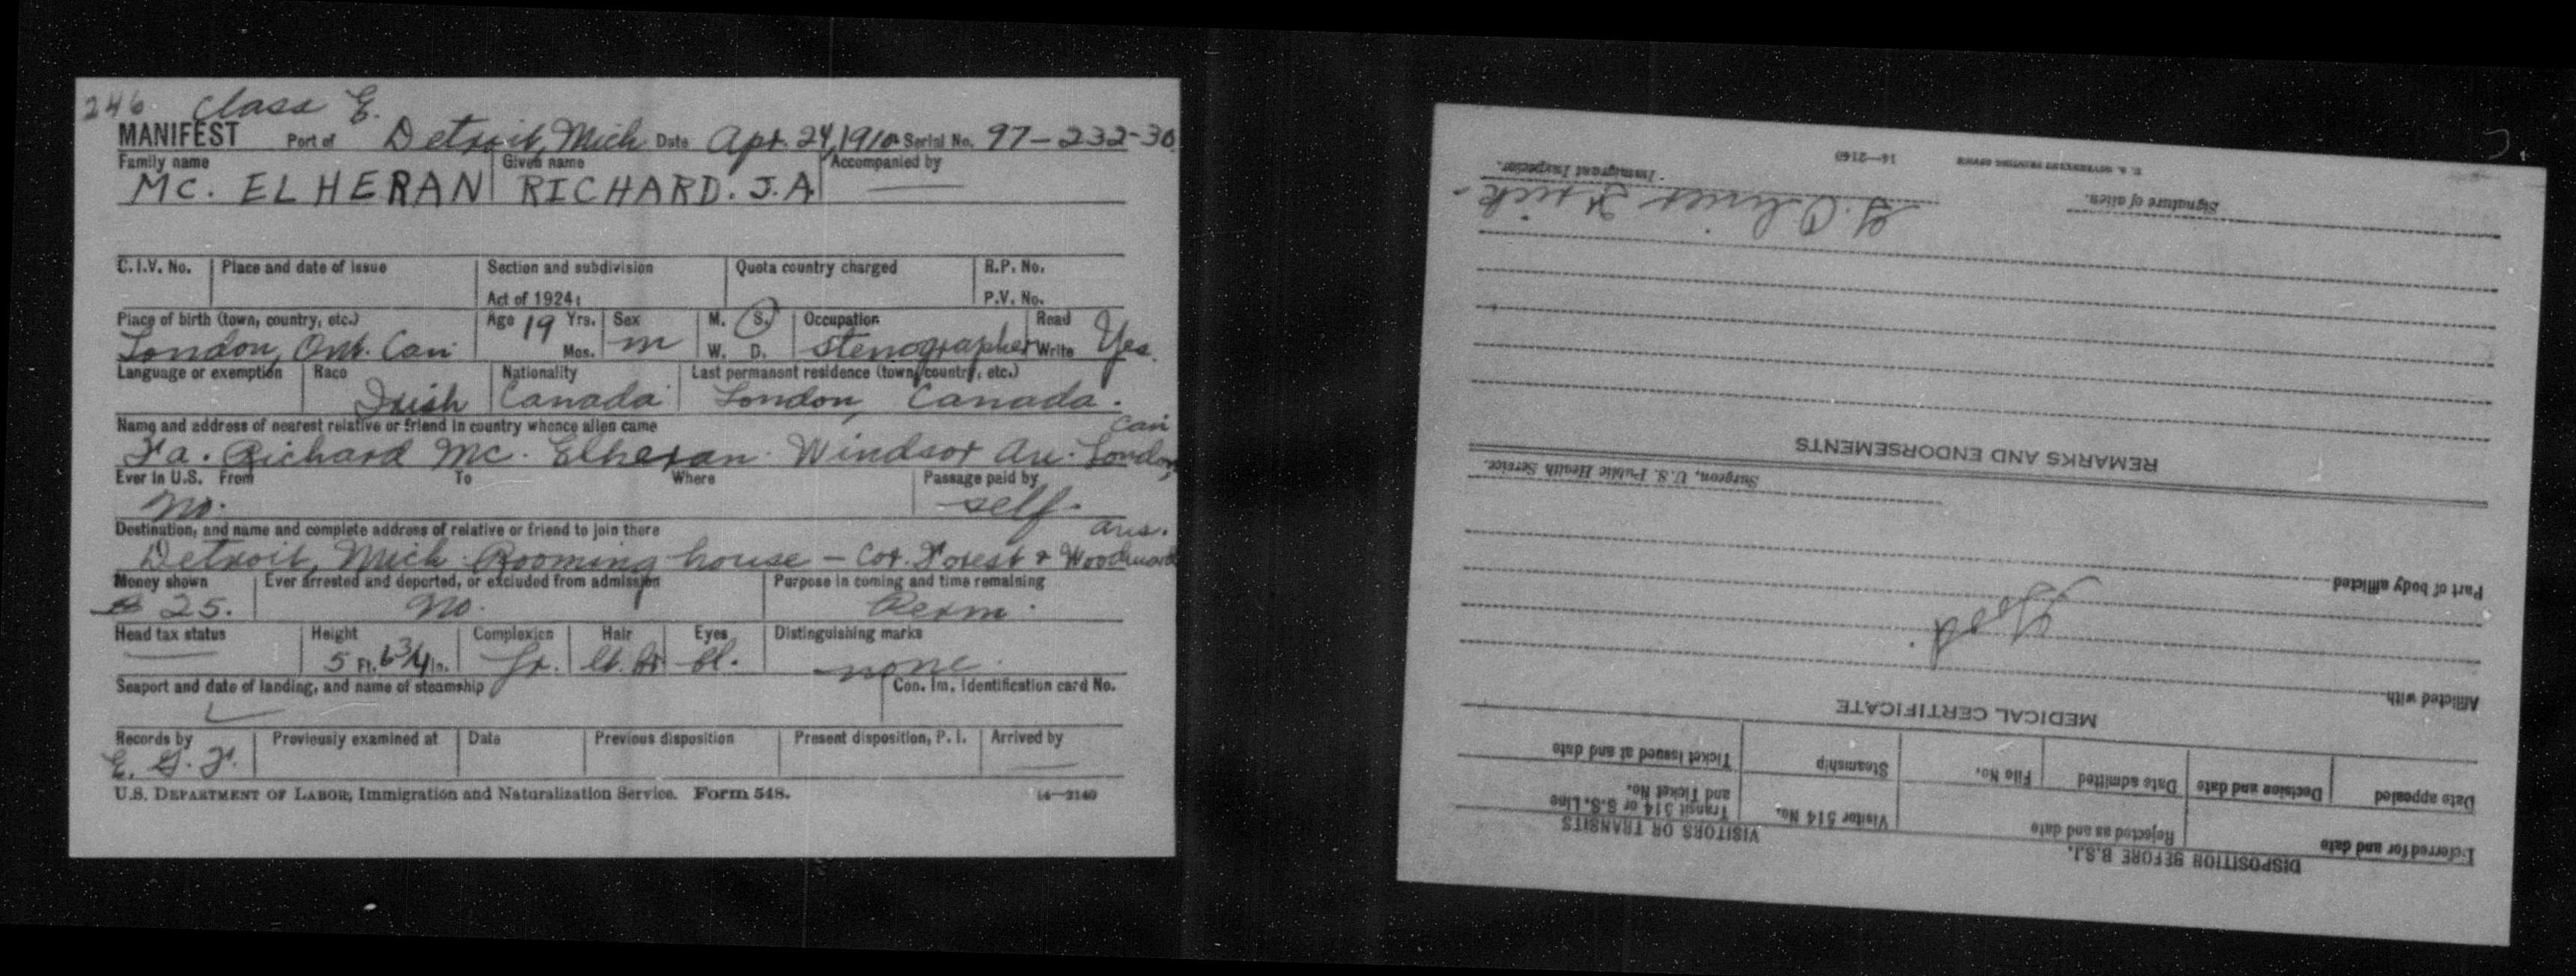 246 Class E.
MANIFEST Port of Detroit, Mich Date Apr. 24, 1910 Serial No. 97-232-30
Family name Given name Accompanied by
MC. ELHERAN RICHARD. J. A. —
C.I.V. No. Place and date of issue Section and subdivision Quota country charged R.P. No.
Act of 1924: P.V. No.
Place of birth (town, country, etc.) Age 19 Yrs. Sex M. S. Occupation Read Yes.
London, Ont. Can Mos. m W. D. stenographer Write
Language or exemption Race Nationality Last permanent residence (town, country, etc.)
Irish Canada London, Canada.
Name and address of nearest relative or friend in country whence alien came Can
Fa. Richard Mc. Elheran. Windsor Av. London,
Ever in U.S. From To Where Passage paid by
No. self.
Destination, and name and complete address of relative or friend to join there avs.
Detroit, Mich. Rooming house — Cor. Forest & Woodward
Money shown Ever arrested and deported, or excluded from admission Purpose in coming and time remaining
$ 25. No. Perm.
Head tax status Height Complexion Hair Eyes Distinguishing marks
— 5 Ft. 6 3/4 In. fr. lt. Br bl. none.
Seaport and date of landing, and name of steamship Con. Im. Identification card No.
Records by Previously examined at Date Previous disposition Present disposition, P. I. Arrived by
E. G. F. —
U.S. DEPARTMENT OF LABOR, Immigration and Naturalization Service. Form 548. 14—2140
DISPOSITION BEFORE B.S.I. VISITORS OR TRANSITS
Deferred for and date Rejected as and date Visitor 514 No. Transit 514 or S.S. Line and Ticket No.
Date appealed Decision and date Date admitted File No. Steamship Ticket issued at and date
MEDICAL CERTIFICATE
Afflicted with
Good.
Part of body afflicted
Surgeon, U.S. Public Health Service.
REMARKS AND ENDORSEMENTS
Signature of alien. Immigrant Inspector.
U. S. GOVERNMENT PRINTING OFFICE 14—2140